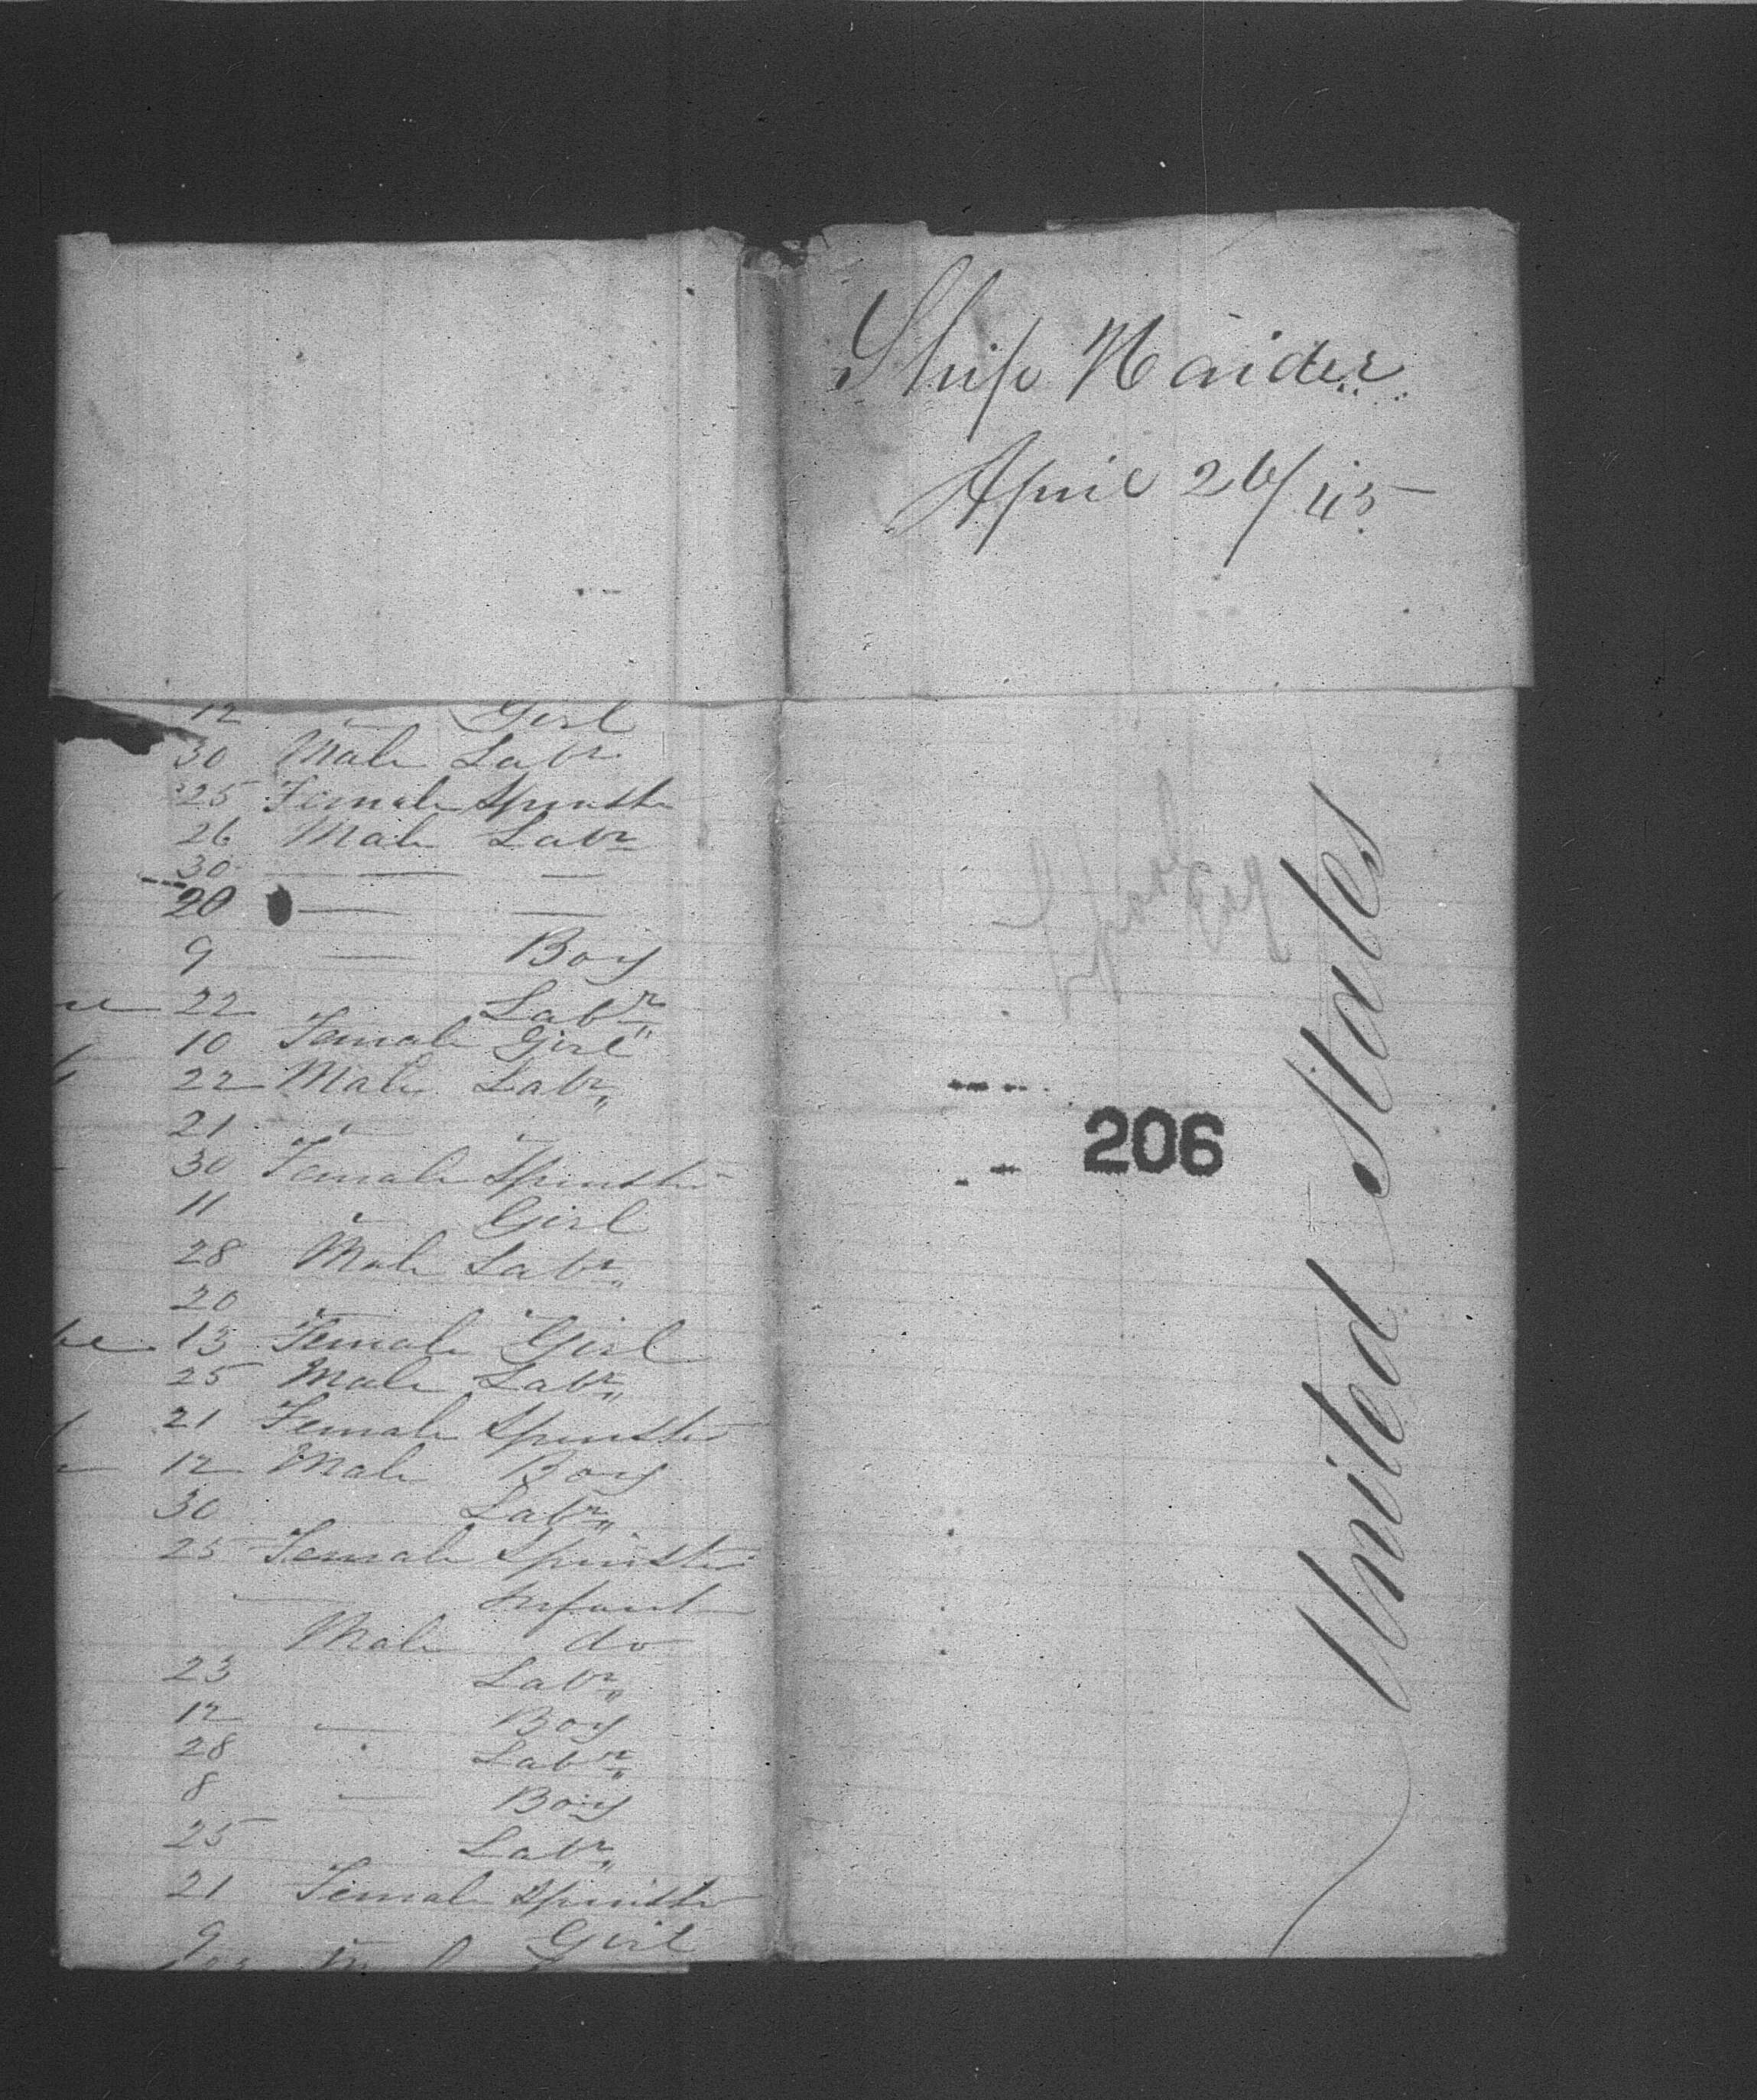 Ship Naider
April 26/45
12 — Girl
30 Male Labr
25 Female Spinster
26 Male Labr
30 — —
20 — —
9 — Boy
22 Labr
10 Female Girl
22 Male Labr
21 "
30 Female Spinster
11 " Girl
28 Male Labr
20
13 Female Girl
25 Male Labr
21 Female Spinster
12 Male Boy
30 Labr
25 Female Spinster
— Infant
Male do
23 Labr
12 — Boy
28 " Labr
8 — Boy
25 Labr
21 Female Spinster
9 Girl
206
United States